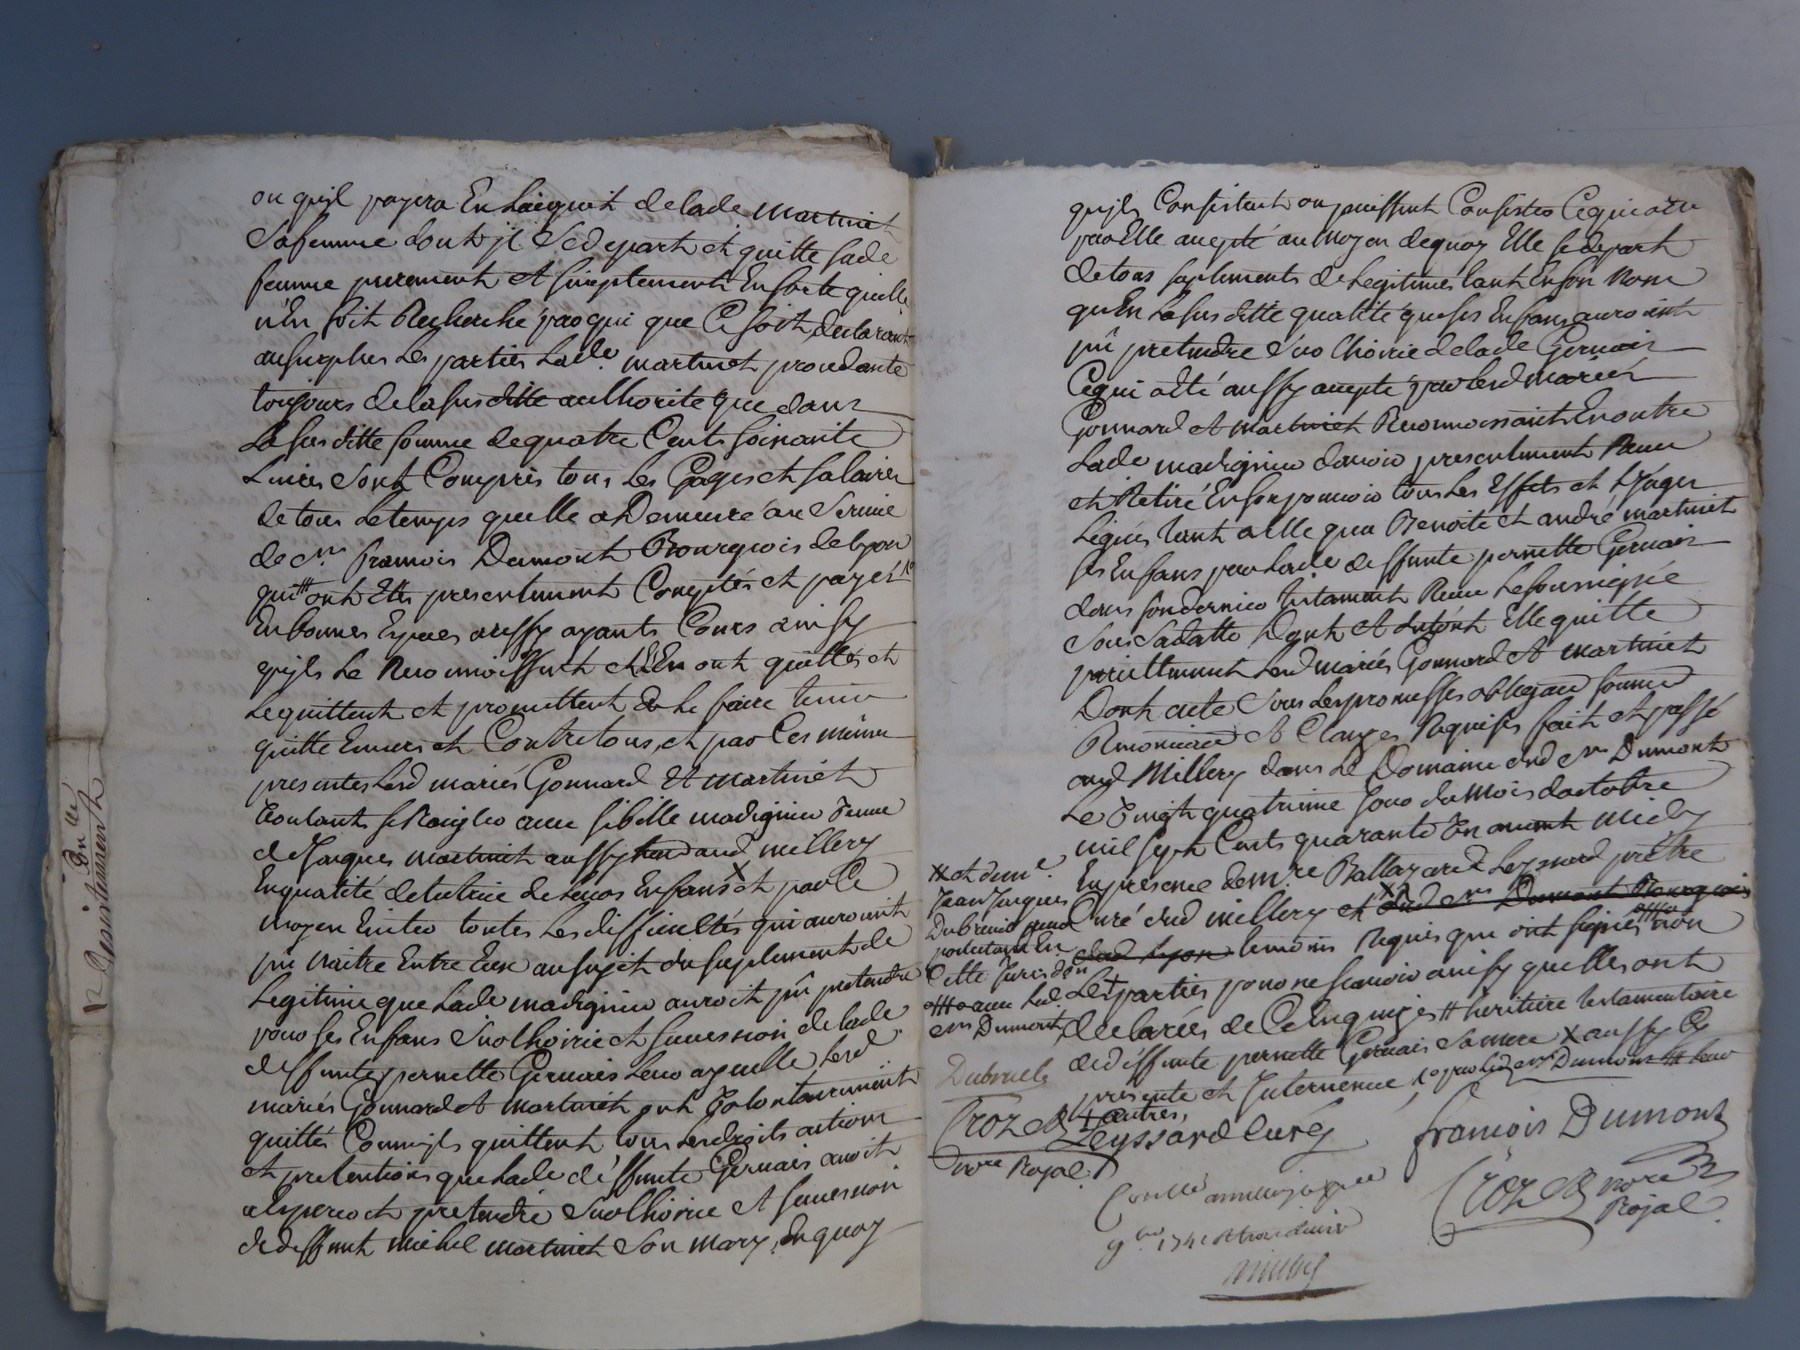 ou quil payera En Lacquit delade martinet
Sa femme dont jl Se depart et quitte sade
femme purement et simplement En sorte quelle
n'En soit Recherché par qui que Ce soit, declarant
au surplus Les parties Lade. martinet procedante
toujours de la susditte authorité que dans
La susditte somme de quatre Cents soixante
Livres sont Compris tous Les Gages et salaires
de tous Le temps quelle a Demeuré au service
de Sr. francois Dumont Bourgeois de Lyon
qui ont Etés presentement Comptés et payés
En bonnes Especes aussy ayants Cours ainsy
quils Le Reconnoissent et L'En ont quittés et
Le quittent et promettent de Le faire tenir
quitte Envers et Contre tous, et par Ces mêmes
presentes Lesd mariés Gonnard Et martinet
voulants se Regler avec sibille madignier veuve
de Jacques martinet aussy aud millery
En qualité de tutrice de Leurs Enfans X et par Ce
moyen Eviter toutes Les difficultés qui auroient
pu naitre Entre Eux au sujet du suplement de
Legitime que Lade madignier auroit pû pretendre
pour ses Enfans sur Lhoirie et succession delade
deffunte pernette Gervais Leur ayeulle, Lesd
mariés Gonnard et martinet ont volontairement
quittés Comme jls quittent tous Les droits actions
et pretentions que Lade déffunte Gervais avoit
a Esperer et pretendre sur Lhoirie et succession
dedeffunt michel martinet son mary, En quoy
qujls Consistent ou puissent Consister Ce qui a été
par Elle accepté au moyen de quoy Elle se depart
de tous supliments de Legitimes tant En son Nom
qu'En La susditte qualité que ses Enfans auroient
pû pretendre sur Lhoirie delade Gervais
Ce qui a été aussy accepté par Lesd mariés
Gonnard et martinet Reconnoissant En outre
Lade madignier davoir presentement Receu
et Retiré En son pouvoir tous Les Effets et
Legués tant a Elle qu'a Benoite et andré martinet
ses Enfans par Lade deffunte pernette Gervais
dans son dernier testament Receu
sous sa datte Dont et Elle quitte
Lesd mariés Gonnard et martinet
Dont acte sous Les promesses obligaon soumon
Renonciaon et Clauses Requises fait et passé
aud Millery dans Le Domaine dud Sr Dumont
Le vingt quatrieme jour du mois doctobre
mil sept Cents quarante Un avant midy
En presence de mre Baltazard Leyssard prêtre
Curé dud millery et X dud Sr Dumont Bourgeois
dud Lyon temoins Requis qui ont signés non
Les parties pour ne scavoir ainsy quelles ont
declarées de Ce Enquises # heritiere testamentaire
dedeffunte pernette Gervais sa mere X aussy Cy
presente et Intervenue, 1o par Led Sr Dumont # Leur
autres,
X et de mre.
Jean Jacques
Dubreuil
postulant En
Cette jurisdon
avec Led.
Sr Dumont
Dubrueil
Croze
Leyssard Curé
francois Dumont
nore Royal
Croze nore
Royal.
Controllé a millery le
9bre 1741
Dn né
R Gratuitement